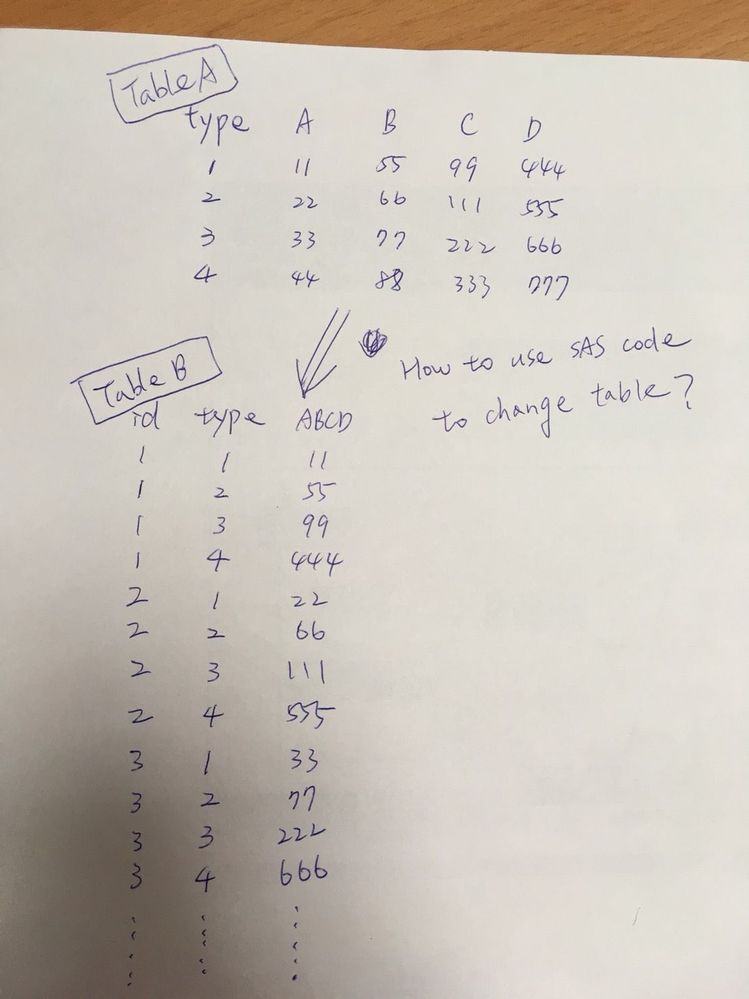 Table A
type A B C D
1 11 55 99 444
2 22 66 111 555
3 33 77 222 666
4 44 88 333 777
How to use SAS code
to change table?
Table B
id type ABCD
1 1 11
1 2 55
1 3 99
1 4 444
2 1 22
2 2 66
2 3 111
2 4 555
3 1 33
3 2 77
3 3 222
3 4 666